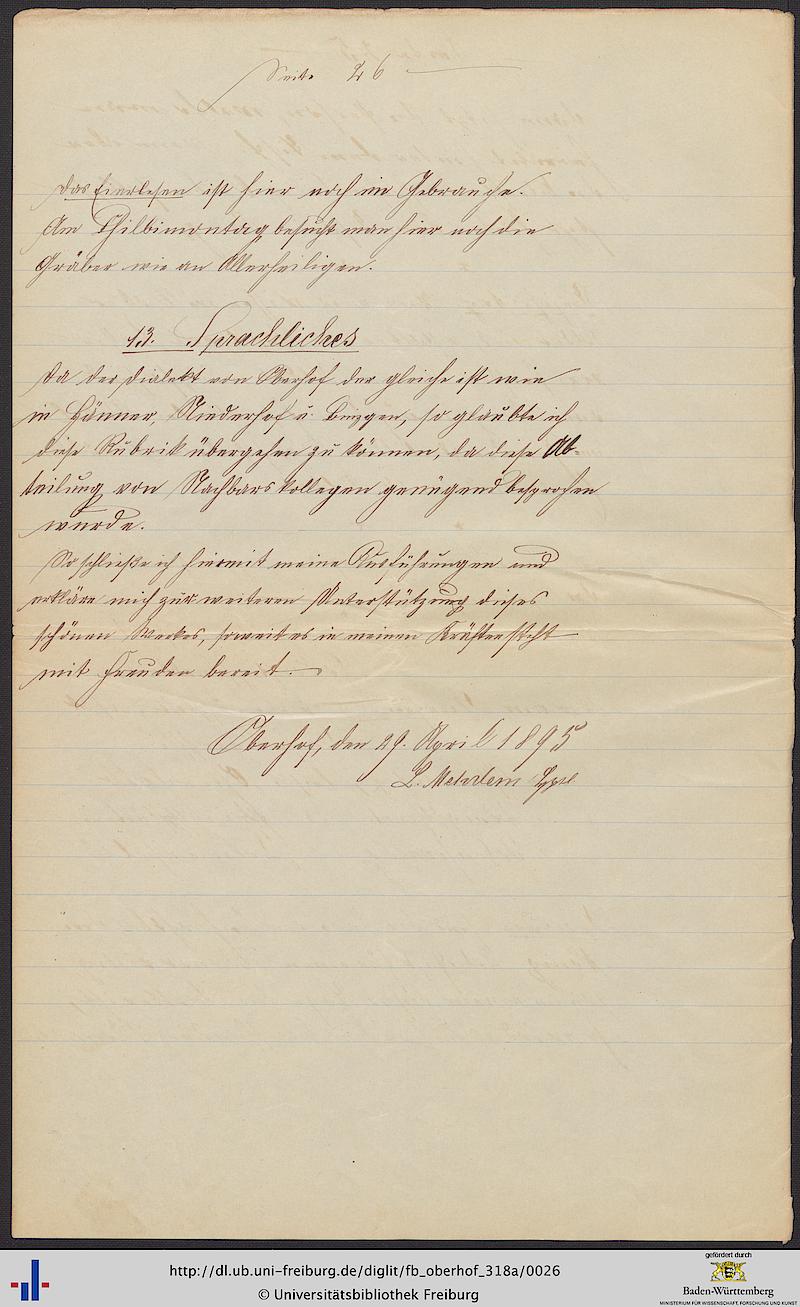 Seite 26
Das Eierlesen ist hier noch im Gebrauche.
Am Chilbimontag besucht man hier noch die
Gräber wie an Allerheiligen.
13. Sprachliches
Da der Dialekt von Oberhof der gleiche ist wie
in Hänner, Niederhof u. Binzgen, so glaubte ich
diese Rubrik übergehen zu können, da diese Ab-
teilung von Nachbarskollegen genügend besprochen
wurde.
So schließe ich hiermit meine Ausführungen und
erkläre mich zur weiteren Unterstützung dieses
schönen Werkes, soweit es in meinen Kräften steht
mit Freuden bereit.
Oberhof, den 29. April 1895
L.
http://dl.ub.uni-freiburg.de/diglit/fb_oberhof_318a/0026
© Universitätsbibliothek Freiburg
gefördert durch
Baden-Württemberg
MINISTERIUM FÜR WISSENSCHAFT, FORSCHUNG UND KUNST